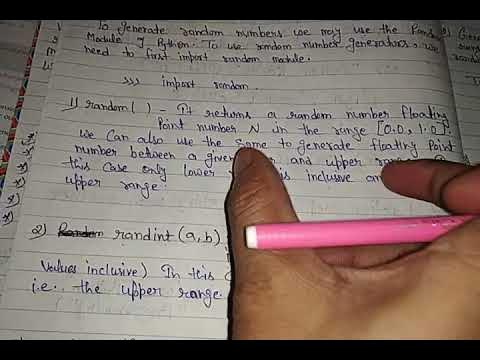 To generate random numbers we may use the
Module of Python. To use random number generators, we
need to first import random module.
>>> import random.
1) random( ) - It returns a random number floating
Point number N in the range [0.0, 1.0].
We can also use the same to generate floating Point
number between a given and upper
this case only lower is inclusive
upper range.
2) randint (a, b)
Values inclusive) In this
i.e. the upper range.